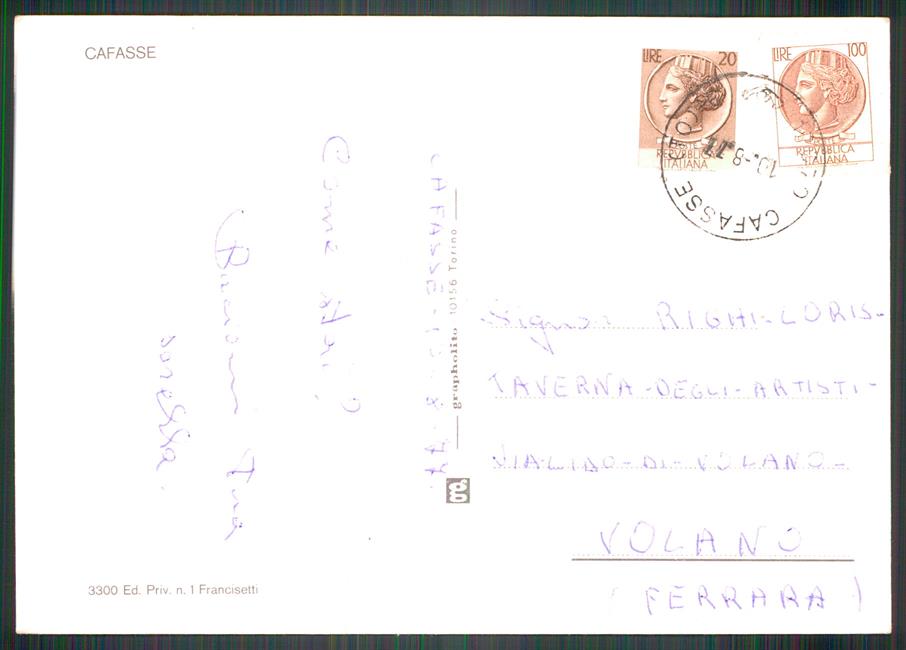 CAFASSE
LIRE 20
POSTE
REPVBBLICA
ITALIANA
LIRE 100
POSTE
REPVBBLICA
ITALIANA
CAFASSE
8.77
CAFASSE - 8-77.
Come stai?
tua
sorella.
grapholito 10156 Torino
g
Signor: RIGHI-LORIS-
TAVERNA-DEGLI-ARTISTI-
VIA-LIDO-DI-VOLANO-
VOLANO
(FERRARA)
3300 Ed. Priv. n. 1 Francisetti